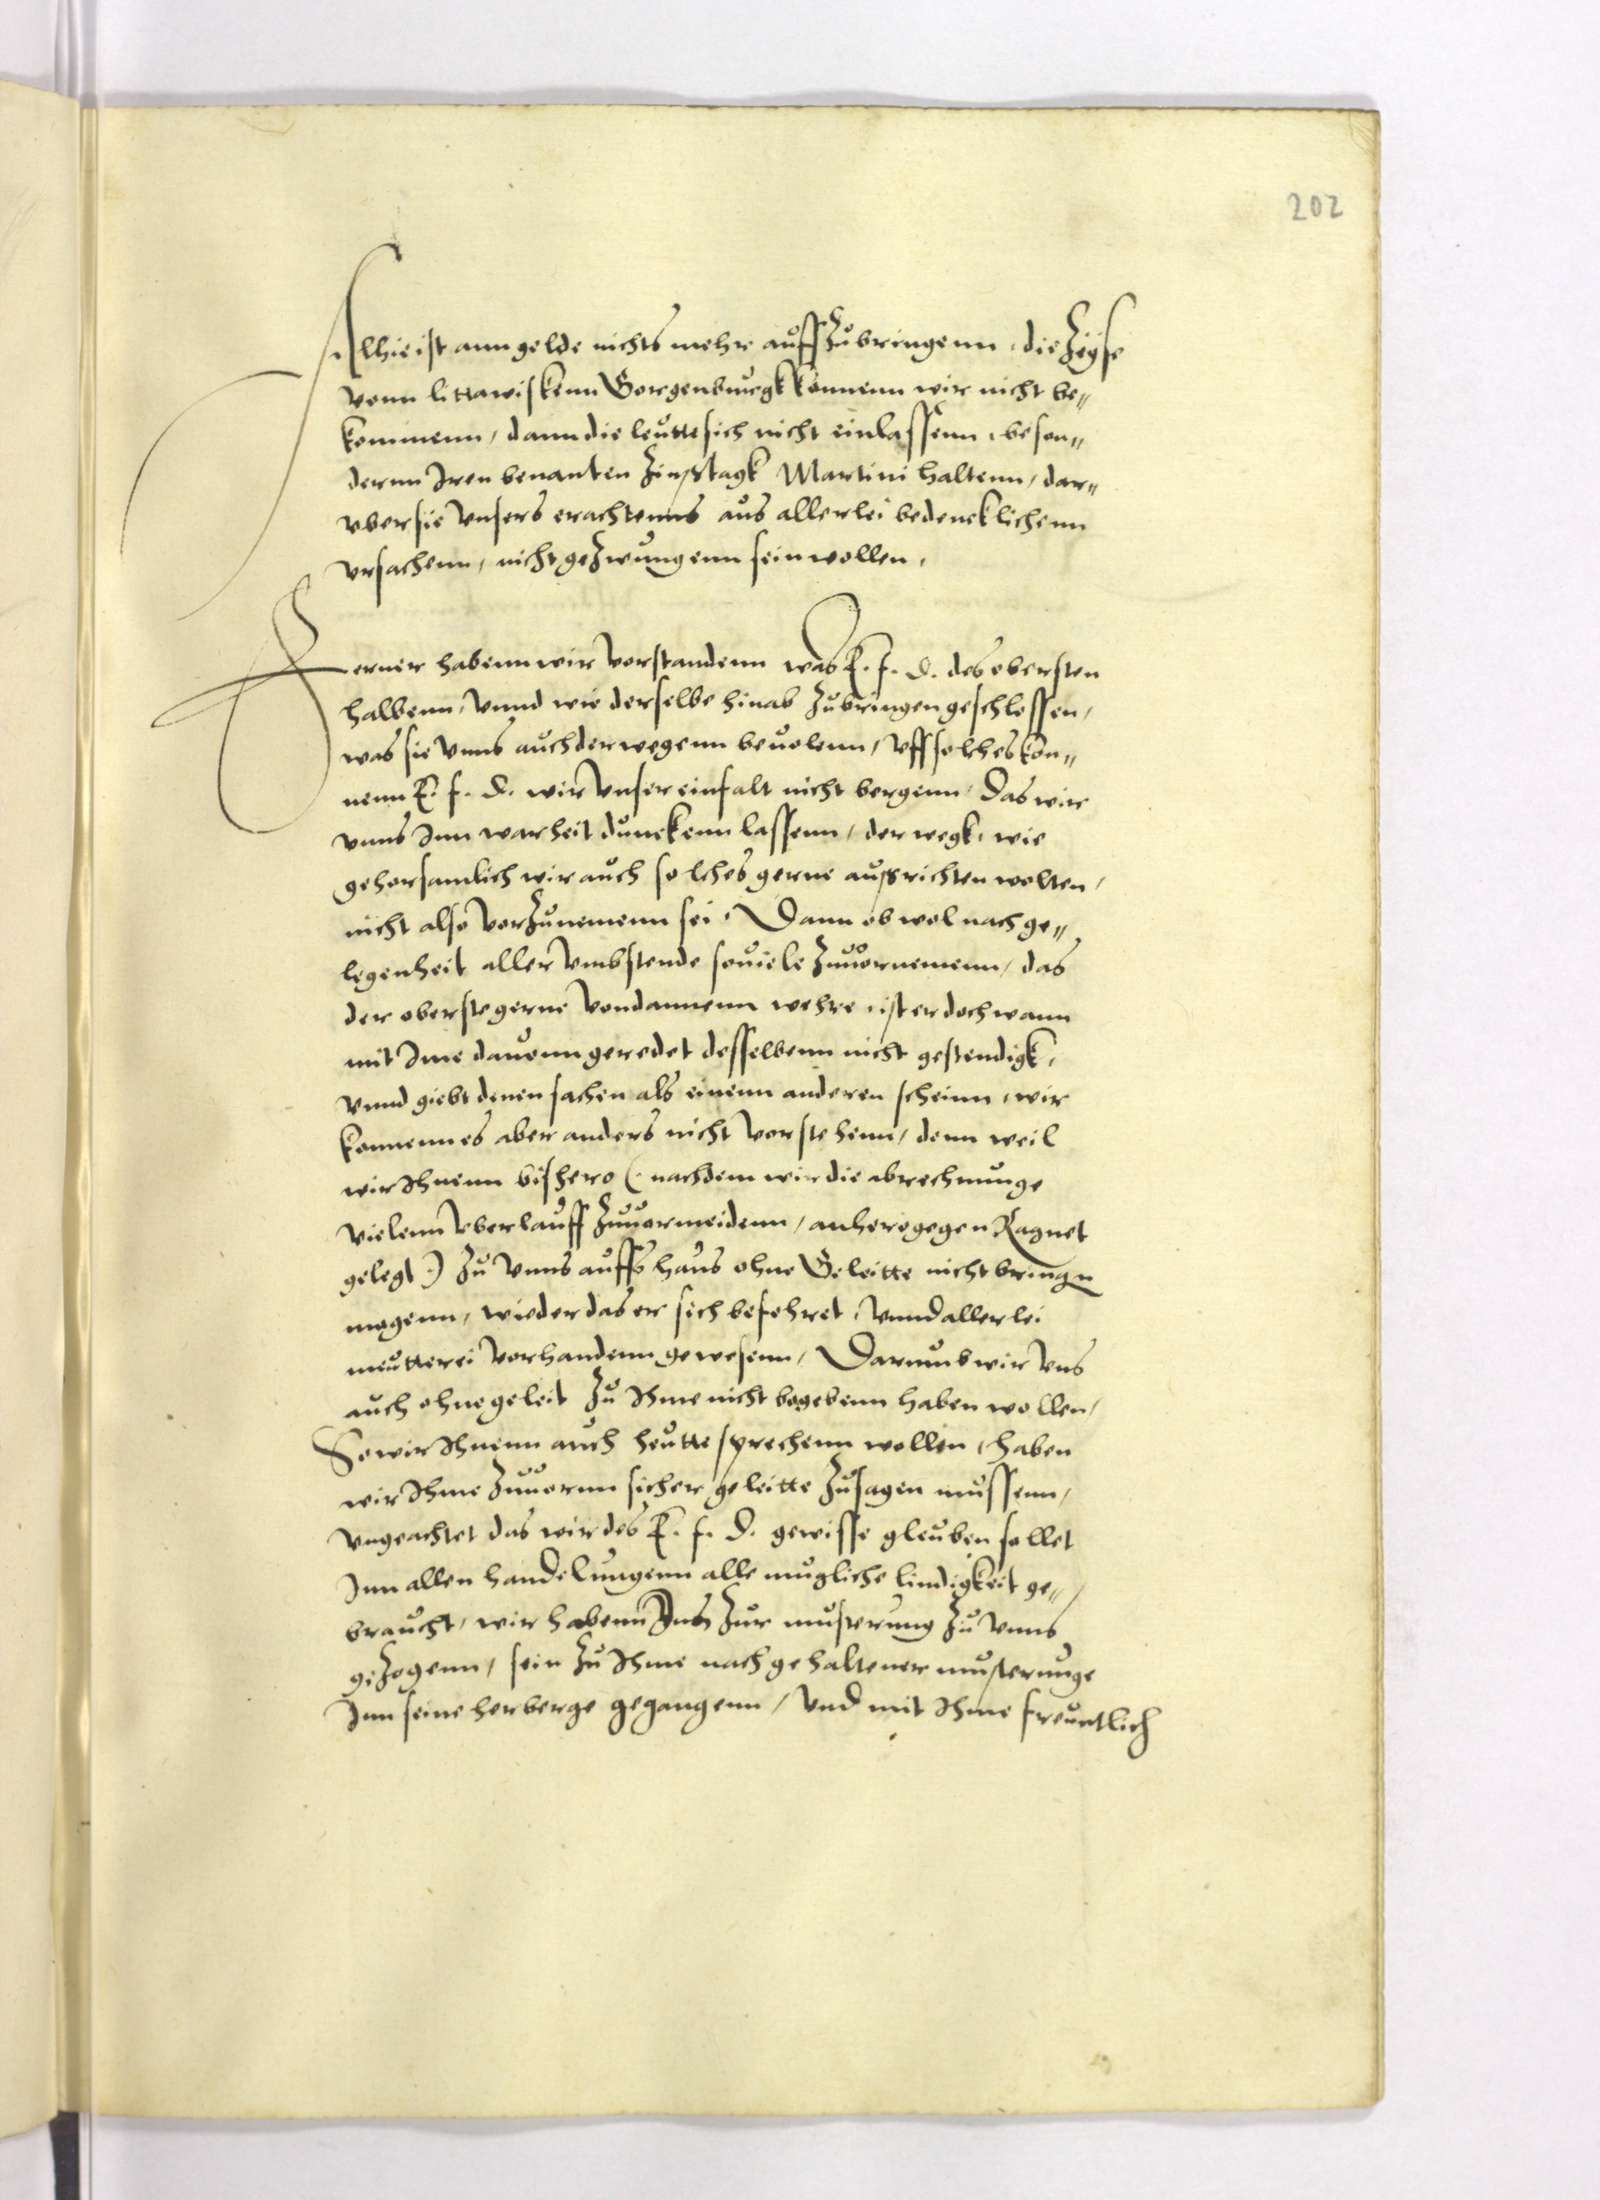 202
Alhie ist ann gelde nichts mehr auff Zubringenn, die Zeyse
vonn littawiskenn Gorgenburgk konnenn wir nicht be„
kommenn, dann die leutte sich nicht einlassenn, beson„
dernn Iren benanten Zinßtagk Martini haltenn, dar„
vber sie vnsers erachtenns aus allerlei bedencklichenn
vrsachenn, nicht geZwungenn sein wollen,
Ferner habenn wir vorstandenn was E. f. D. des obersten
halbenn, vnnd wie derselbe hinab Zubringen geschlossen,
was sie vnns auch derwegenn beuolenn, vff solches kön„
nenn E. f. D. wir vnser einfalt nicht bergenn, Das wir
vnns Inn warheit dunckenn lassenn, der wegk, wie
gehorsamlich wir auch solches gerne außrichten wolten,
nicht also vorZunemenn sei, Dann ob wol nach ge„
legenheit aller vmbstende souiele Zuuornemenn, das
der oberste gerne vondannenn wehre, ist er doch wann
mit Ime dauonn geredet desselbenn nicht gestendigk,
vnnd giebt denen sachen als einenn anderen scheinn, wir
konnenn es aber anders nicht vorstehenn, denn weil
wir Ihnenn bishero (: nachdem wir die abrechnunge
vielenn vberlauff Zuuormeidenn, anhero gegen Ragnet
gelegt :) Zu vnns auffs haus ohne Geleitte nicht bringn
mogenn, wieder das er sich befehret, vnnd allerlei
meutterei vorhandenn gewesenn, Darumb wir vns
auch ohne geleit Zu Ihme nicht begebenn haben wollen,
So wir Ihnenn auch heutte sprechenn wollen, haben
wir Ihme Zuuornn sicher geleitte Zusagen mussenn,
vngeachtet das wir des E. f. D. gewisse gleuben sollet
Inn allen handelungenn alle mugliche lindigkeit ge„
braucht, wir habenn Zur musterung Zu vnns
geZogenn, sein Zu Ihme nach gehaltener musterunge
Inn seine herberge gegangenn, vnd mit Ihme freuntlich